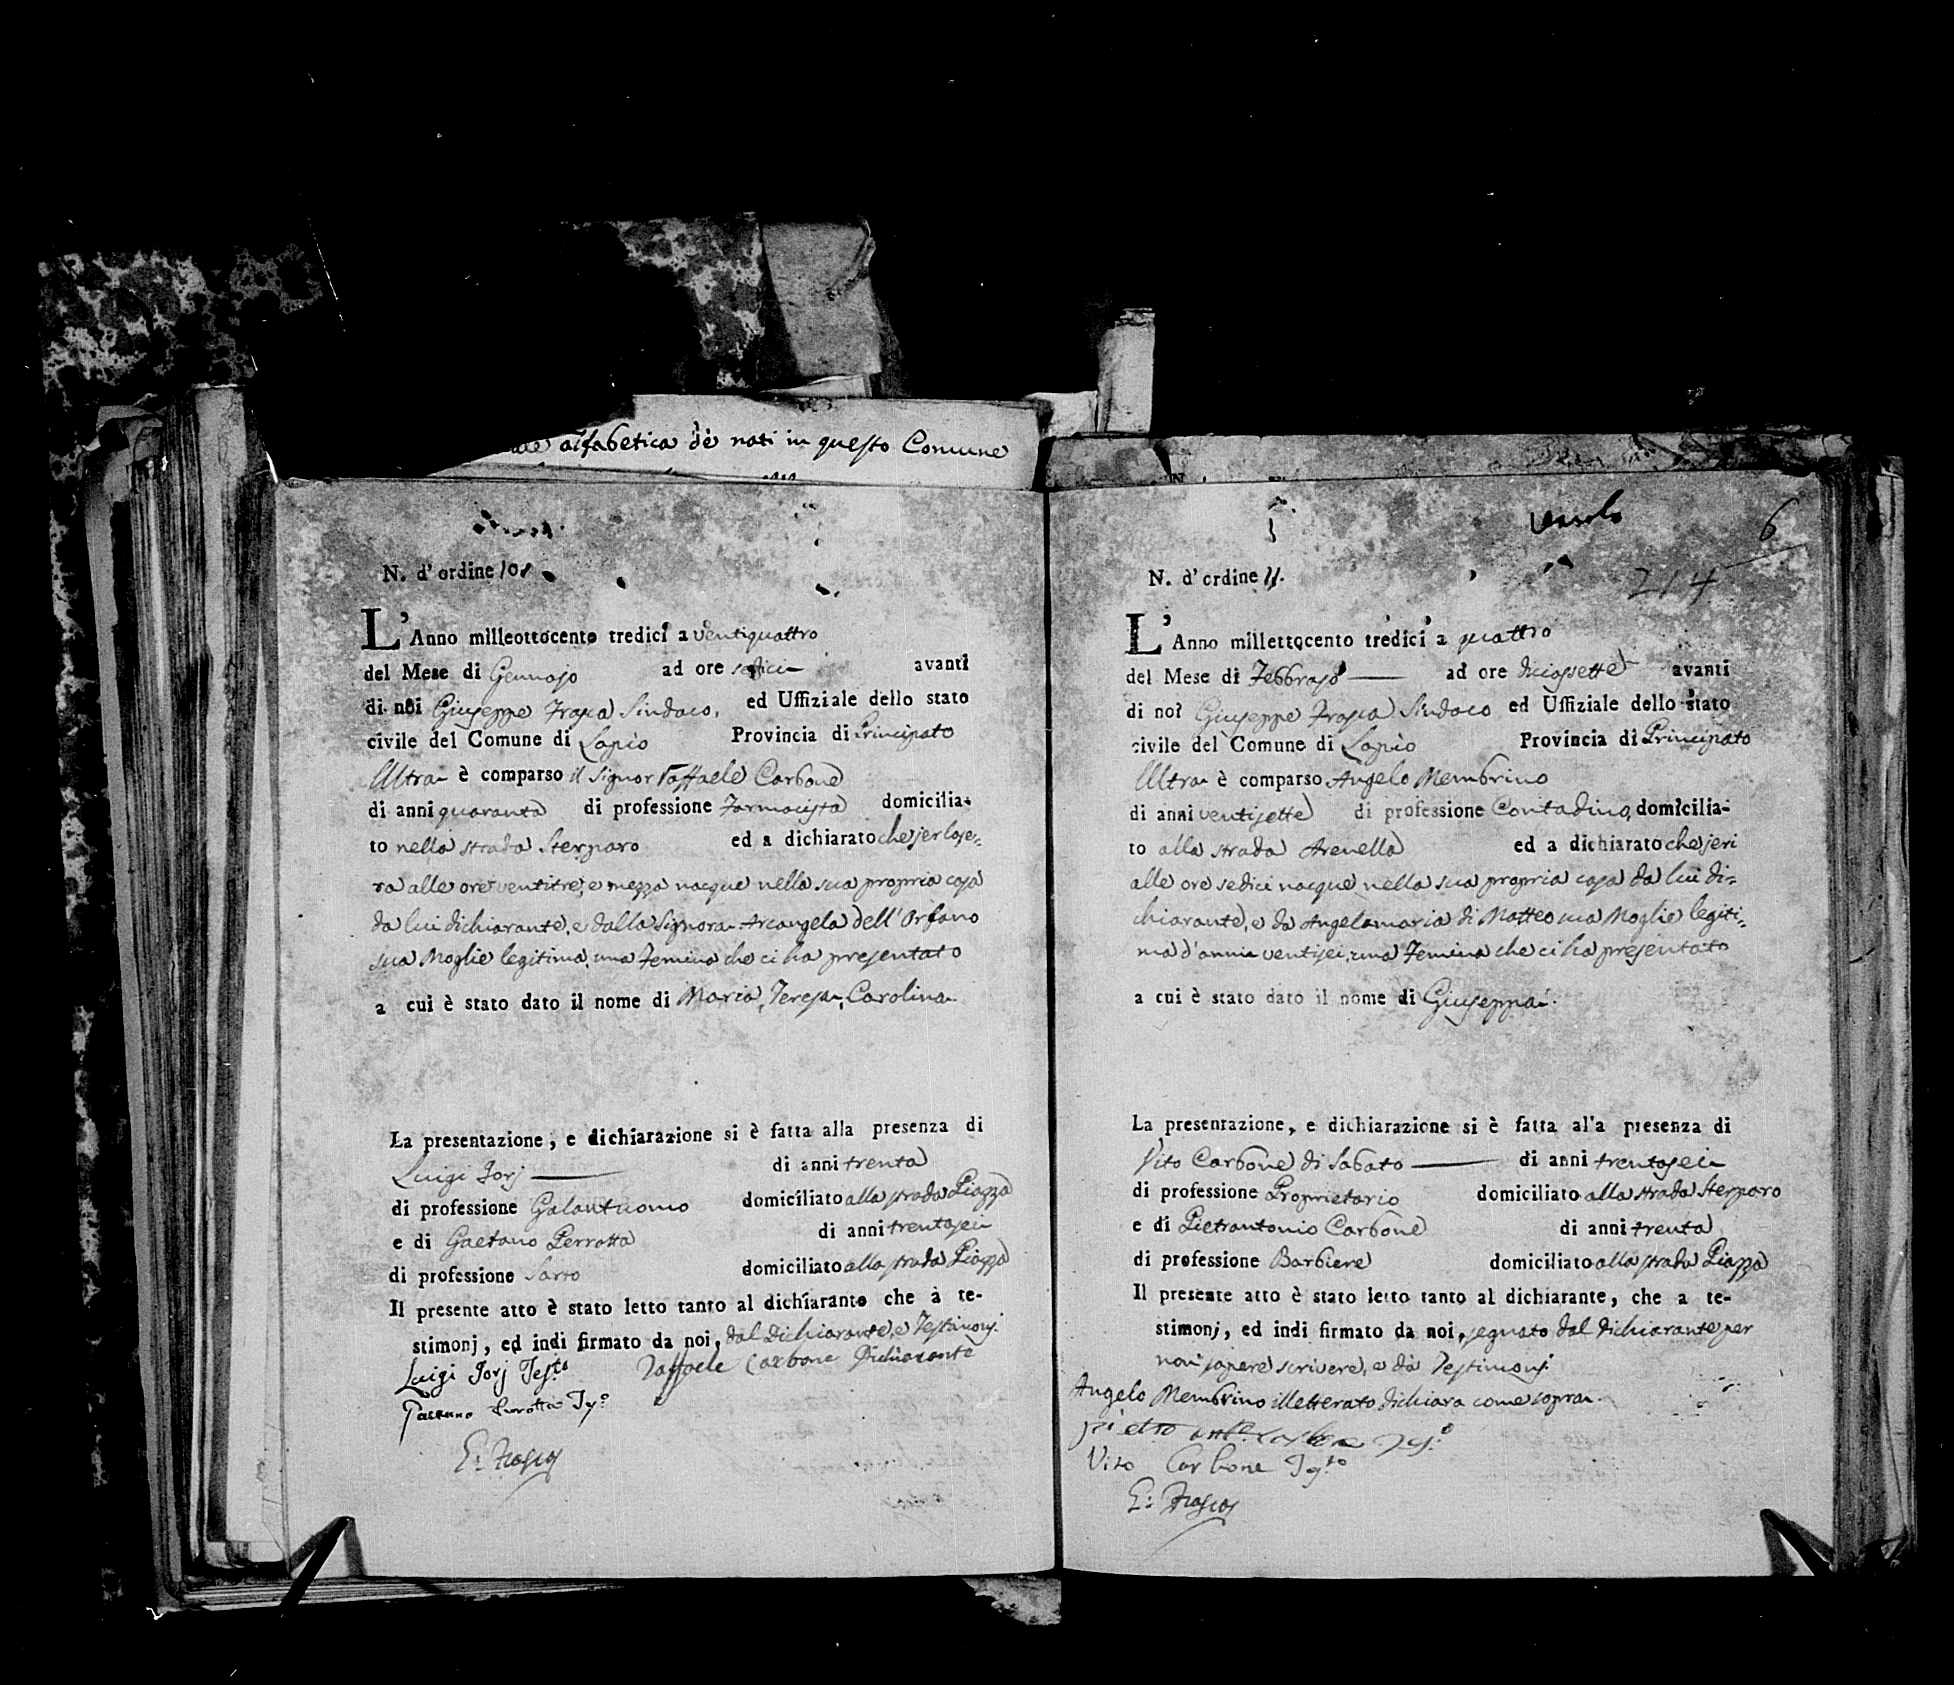 alfabetica de nati in questo Comune
N. d'ordine 10.
L'Anno milleottocento tredici a ventiquattro
del Mese di Gennajo ad ore sedici avanti
di noi Giuseppe Frasca Sindaco, ed Uffiziale dello stato
civile del Comune di Lapio Provincia di Principato
Ultra è comparso il Signor Raffaele Carbone
di anni quaranta di professione Farmacista domicilia-
to nella strada Sterparo ed a dichiarato che jer lase-
ra alle ore ventitre, e mezza nacque nella sua propria casa
da lui dichiarante, e dalla Signora Arcangela Dell'Orfano
sua Moglie legitima, una Femina che ci ha presentato
a cui è stato dato il nome di Maria, Teresa, Carolina
La presentazione, e dichiarazione si è fatta alla presenza di
Luigi Jorj di anni trenta
di professione Galantuomo domiciliato alla strada Piazza
e di Gaetano Perrotta di anni trentasei
di professione Sarto domiciliato alla strada Piazza
Il presente atto è stato letto tanto al dichiarante che à te-
stimonj, ed indi firmato da noi, dal Dichiarante, e Testimonj.
Luigi Jorj Test.º Raffaele Carbone Dichiarante
Gaetano Perrotta Tes.º
G: Frasca
6
214
N. d'ordine 11.
L'Anno millettocento tredici a quattro
del Mese di Febbrajo ad ore diciassette avanti
di noi Giuseppe Frasca Sindaco ed Uffiziale dello stato
civile del Comune di Lapio Provincia di Principato
Ultra è comparso Angelo Membrino
di anni ventisette di professione Contadino, domicilia-
to alla strada Arenella ed a dichiarato che jeri
alle ore sedici nacque nella sua propria casa da lui di-
chiarante, e da Angelamaria di Matteo sua Moglie legiti-
ma d'anni ventisei, una Femina che ci ha presentato
a cui è stato dato il nome di Giuseppa.
La presentazione, e dichiarazione si è fatta al'a presenza di
Vito Carbone di Sabato di anni trentasei
di professione Proprietario domiciliato alla strada Sterparo
e di Pietrantonio Carbone di anni trenta
di professione Barbiere domiciliato alla strada Piazza
Il presente atto è stato letto tanto al dichiarante, che a te-
stimonj, ed indi firmato da noi, segnato dal dichiarante per
non sapere scrivere, e da Testimonj
Angelo Membrino illetterato dichiara come sopra.
Pietro ant.º Carbone Tes.º
Vito Carbone Tes.to
G: Frasca